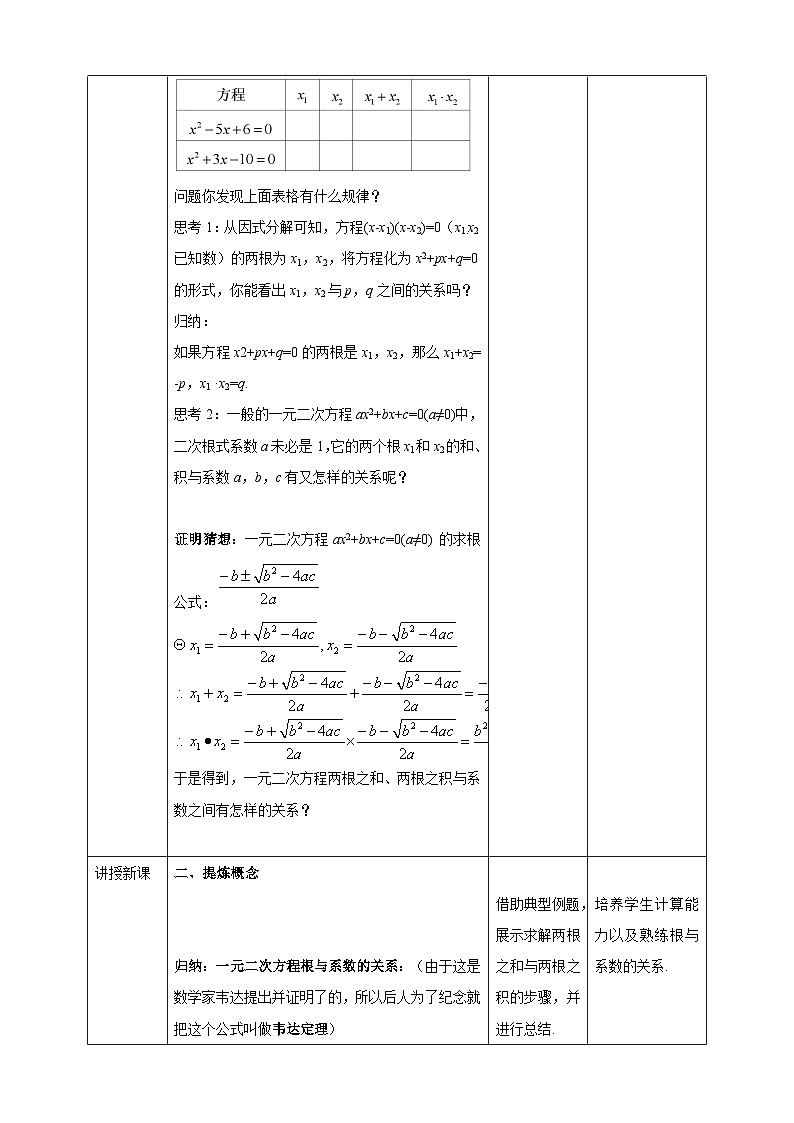 方程 x₁ x₂ x₁+x₂ x₁·x₂
x²-5x+6=0
x²+3x-10=0
问题你发现上面表格有什么规律？
思考 1：从因式分解可知，方程(x-x₁)(x-x₂)=0（x₁,x₂
已知数）的两根为 x₁，x₂，将方程化为 x²+px+q=0
的形式，你能看出 x₁，x₂ 与 p，q 之间的关系吗？
归纳：
如果方程 x2+px+q=0 的两根是 x₁，x₂，那么 x₁+x₂=
-p，x₁ ·x₂=q.
思考 2：一般的一元二次方程 ax²+bx+c=0(a≠0)中，
二次根式系数 a 未必是 1,它的两个根 x₁ 和 x₂ 的和、
积与系数 a，b，c 有又怎样的关系呢？
证明猜想：一元二次方程 ax²+bx+c=0(a≠0) 的求根
公式： (-b±√(b²-4ac))/2a
Θ x₁=(-b+√(b²-4ac))/2a, x₂=(-b-√(b²-4ac))/2a
∴ x₁+x₂=(-b+√(b²-4ac))/2a+(-b-√(b²-4ac))/2a=
∴ x₁●x₂=(-b+√(b²-4ac))/2a×(-b-√(b²-4ac))/2a=b²
于是得到，一元二次方程两根之和、两根之积与系
数之间有怎样的关系？
讲授新课
二、提炼概念
归纳：一元二次方程根与系数的关系：（由于这是
数学家韦达提出并证明了的，所以后人为了纪念就
把这个公式叫做韦达定理）
借助典型例题，
展示求解两根
之和与两根之
积的步骤，并
进行总结.
培养学生计算能
力以及熟练根与
系数的关系.